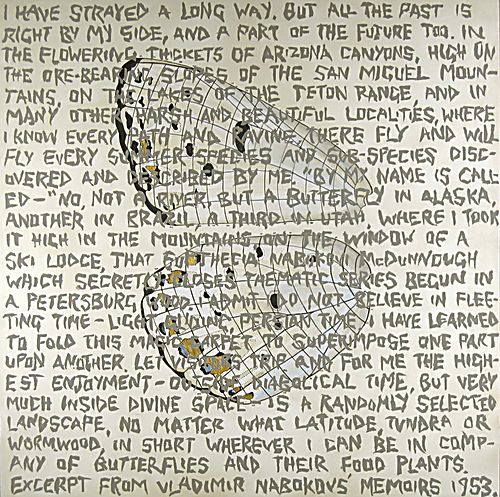 I HAVE STRAYED A LONG WAY. BUT ALL THE PAST IS
RIGHT BY MY SIDE, AND A PART OF THE FUTURE TOO. IN
THE FLOWERING THICKETS OF ARIZONA CANYONS, HIGH ON
THE ORE-BEARING SLOPES OF THE SAN MIGUEL MOUN-
TAINS, ON THE LAKES OF THE TETON RANGE, AND IN
MANY OTHER HARSH AND BEAUTIFUL LOCALITIES, WHERE
I KNOW EVERY PATH AND RAVINE, THERE FLY AND WILL
FLY EVERY SUMMER SPECIES AND SUB-SPECIES DISC-
OVERED AND DESCRIBED BY ME. "BY MY NAME IS CALL-
ED-"NO, NOT A RIVER, BUT A BUTTERFLY IN ALASKA,
ANOTHER IN BRAZIL, A THIRD IN UTAH, WHERE I TOOK
IT HIGH IN THE MOUNTAINS, ON THE WINDOW OF A
SKI LODGE, THAT EUPITHECIA NABOKOVI MCDUNNOUGH
WHICH SECRETLY CLOSES THEMATIC SERIES BEGUN IN
A PETERSBURG WOOD. I ADMIT I DO NOT BELIEVE IN FLEE-
TING TIME-LIGHT, FLOWING, PERSIAN TIME. I HAVE LEARNED
TO FOLD THIS MAGIC CARPET TO SUPERIMPOSE ONE PART
UPON ANOTHER. LET VISITORS TRIP. AND FOR ME THE HIGH-
EST ENJOYMENT-OUTSIDE DIABOLICAL TIME, BUT VERY
MUCH INSIDE DIVINE SPACE- IS A RANDOMLY SELECTED
LANDSCAPE, NO MATTER WHAT LATITUDE, TUNDRA OR
WORMWOOD, IN SHORT WHEREVER I CAN BE IN COMP-
ANY OF BUTTERFLIES AND THEIR FOOD PLANTS.
EXCERPT FROM VLADIMIR NABOKOVS' MEMOIRS 1953.